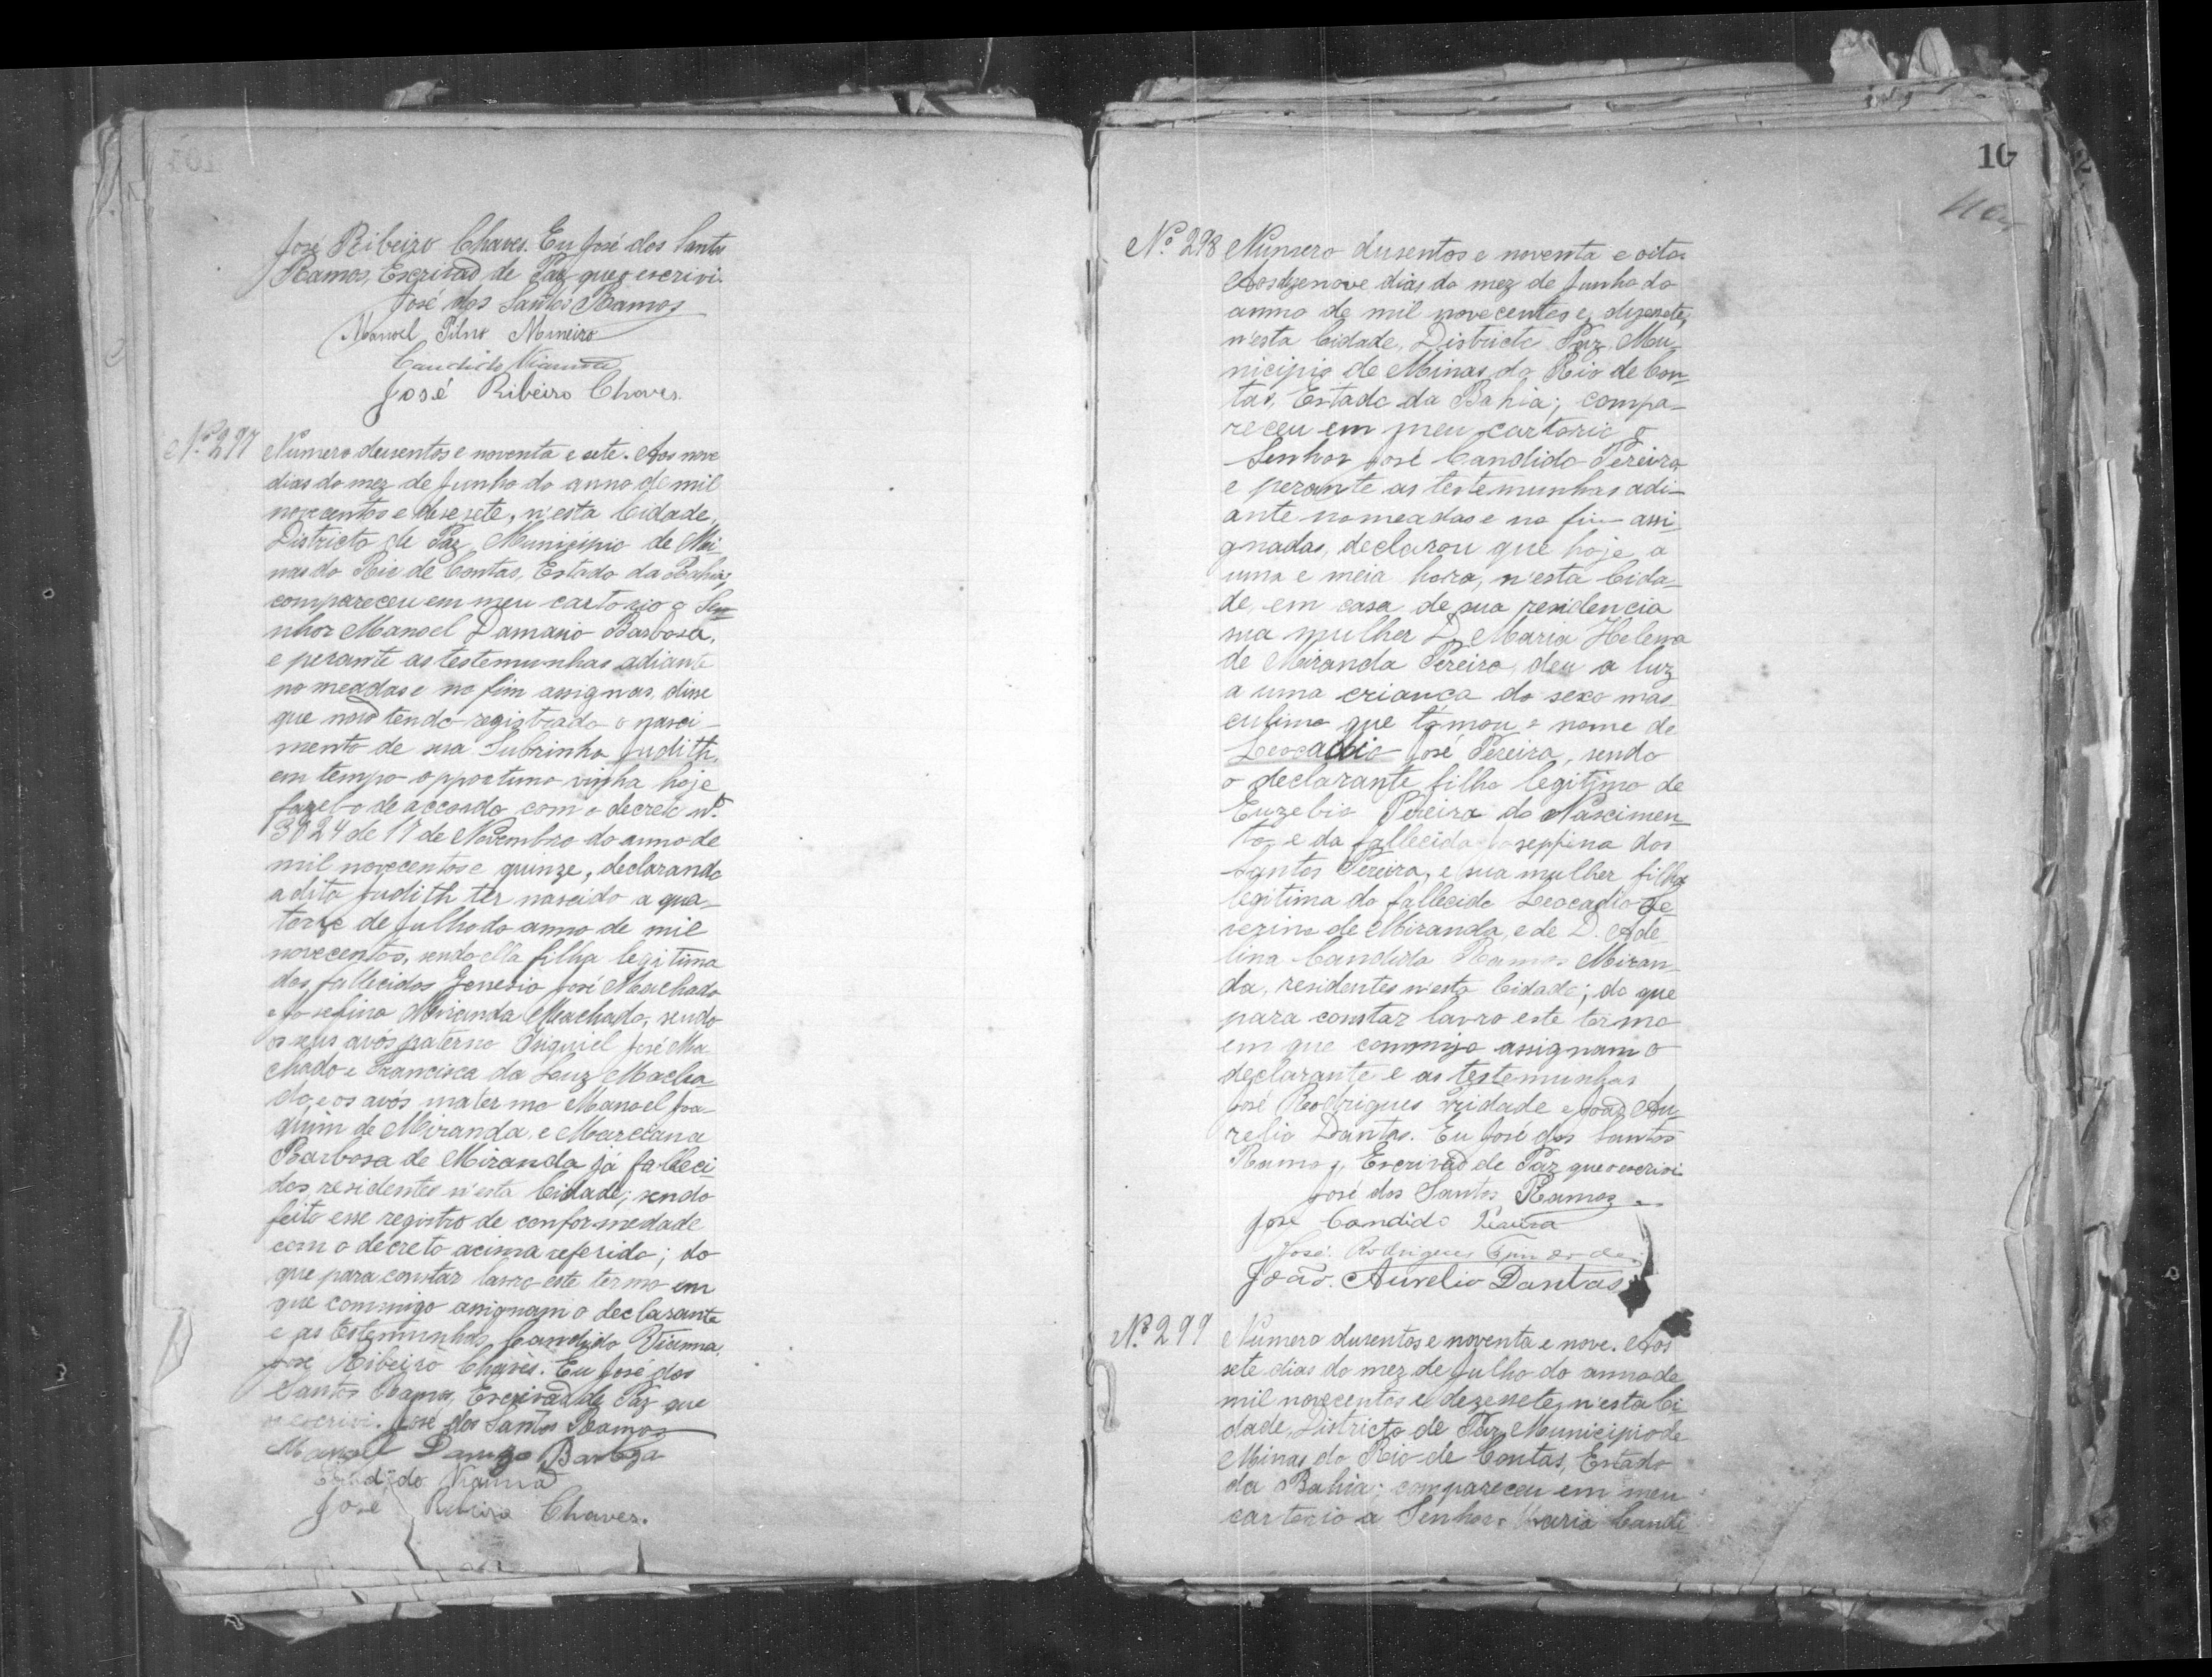 José Ribeiro Chaves. Eu José dos Santos
Ramos, Escrivaõ de Paz que o escrivi.
José dos Santos Ramos
Manoel
Candido Vianna
José Ribeiro Chaves.
Nº 297
Numero dusentos e noventa e sete. Aos nove
dias do mez de Junho do anno de mil
novecentos e desesete, n'esta Cidade,
Districto de Paz, Municipio de Mi-
nas do Rio de Contas, Estado da Bahia,
compareceu em meu cartorio o Se-
nhor Manoel Damasio Barbosa,
e perante as testemunhas adiante
nomeadas e no fim assignas, disse
que naõ tendo registrado o nasci-
mento de sua Subrinha Judith,
em tempo opportuno vinha hoje
fazel-o de accordo com o decreto nº
3024 de 17 de Novembro do anno de
mil novecentos e quinze, declarando
a dita Judith ter nascido a qua-
torze de Julho do anno de mil
novecentos, sendo ella filha legitima
dos fallecidos Genesio José Machado
e Josefina Miranda Machado, sendo
os seus avós paterno José Ma-
chado e Francisca da Luz Macha-
do, e os avós materno Manoel Joa-
quim de Miranda, e Marciana
Barbosa de Miranda já falleci-
dos, residentes n'esta Cidade; sendo
feito esse registro de conformedade
com o decreto acima referido; do
que para constar lavro este termo em
que commigo assignam o declarante
e as testemunhas, Candido Vianna,
José Ribeiro Chaves. Eu José dos
Santos Ramos, Escrivaõ de Paz que
o escrivi. José dos Santos Ramos
Manoel Barboza
Candido Vianna
José Ribeiro Chaves.
10
Nº 298
Numero dusentos e noventa e oito.
Aos desenove dias do mez de Junho do
anno de mil novecentos e, dezesete,
n'esta Cidade, Districto Paz, Mu-
nicipio de Minas do Rio de Con-
tas, Estado da Bahia; compa-
receu em meu cartorio o
Senhor José Candido Pereira
e perante as testemunhas adi-
ante nomeadas e no fim assi-
gnadas, declarou que hoje, a
uma e meia hora, n'esta Cida-
de, em casa de sua residencia
sua mulher D. Maria Helena
de Miranda Pereira, deu a luz
a uma criança do sexo mas-
culino que tomou o nome de
Leocadio José Pereira, sendo
o declarante filho legitimo de
Euzebio Pereira do Nascimen-
to, e da fallecida Joseppina dos
Santos Pereira, e sua mulher filha
legitima do fallecido Leocadio Ze-
verino de Miranda, e de D. Ade-
lina Candida Ramos Miran-
da, residentes n'esta Cidade; do que
para constar lavro este termo
em que commigo assignam o
declarante e as testemunhas
José Rodrigues Tridade e João Au-
relio Dantas. Eu José dos Santos
Ramos, Escrivaõ de Paz que o escrivi
José dos Santos Ramos
José Candido Pereira
José Rodrigues
João Aurelio Dantas
Nº 299
Numero dusentos e noventa e nove. Aos
sete dias do mez de Julho do anno de
mil novecentos e dezesete, n'esta Ci-
dade, Districto de Paz, Municipio de
Minas do Rio de Contas, Estado
da Bahia; compareceu em meu
cartorio a Senhora Maria Candi